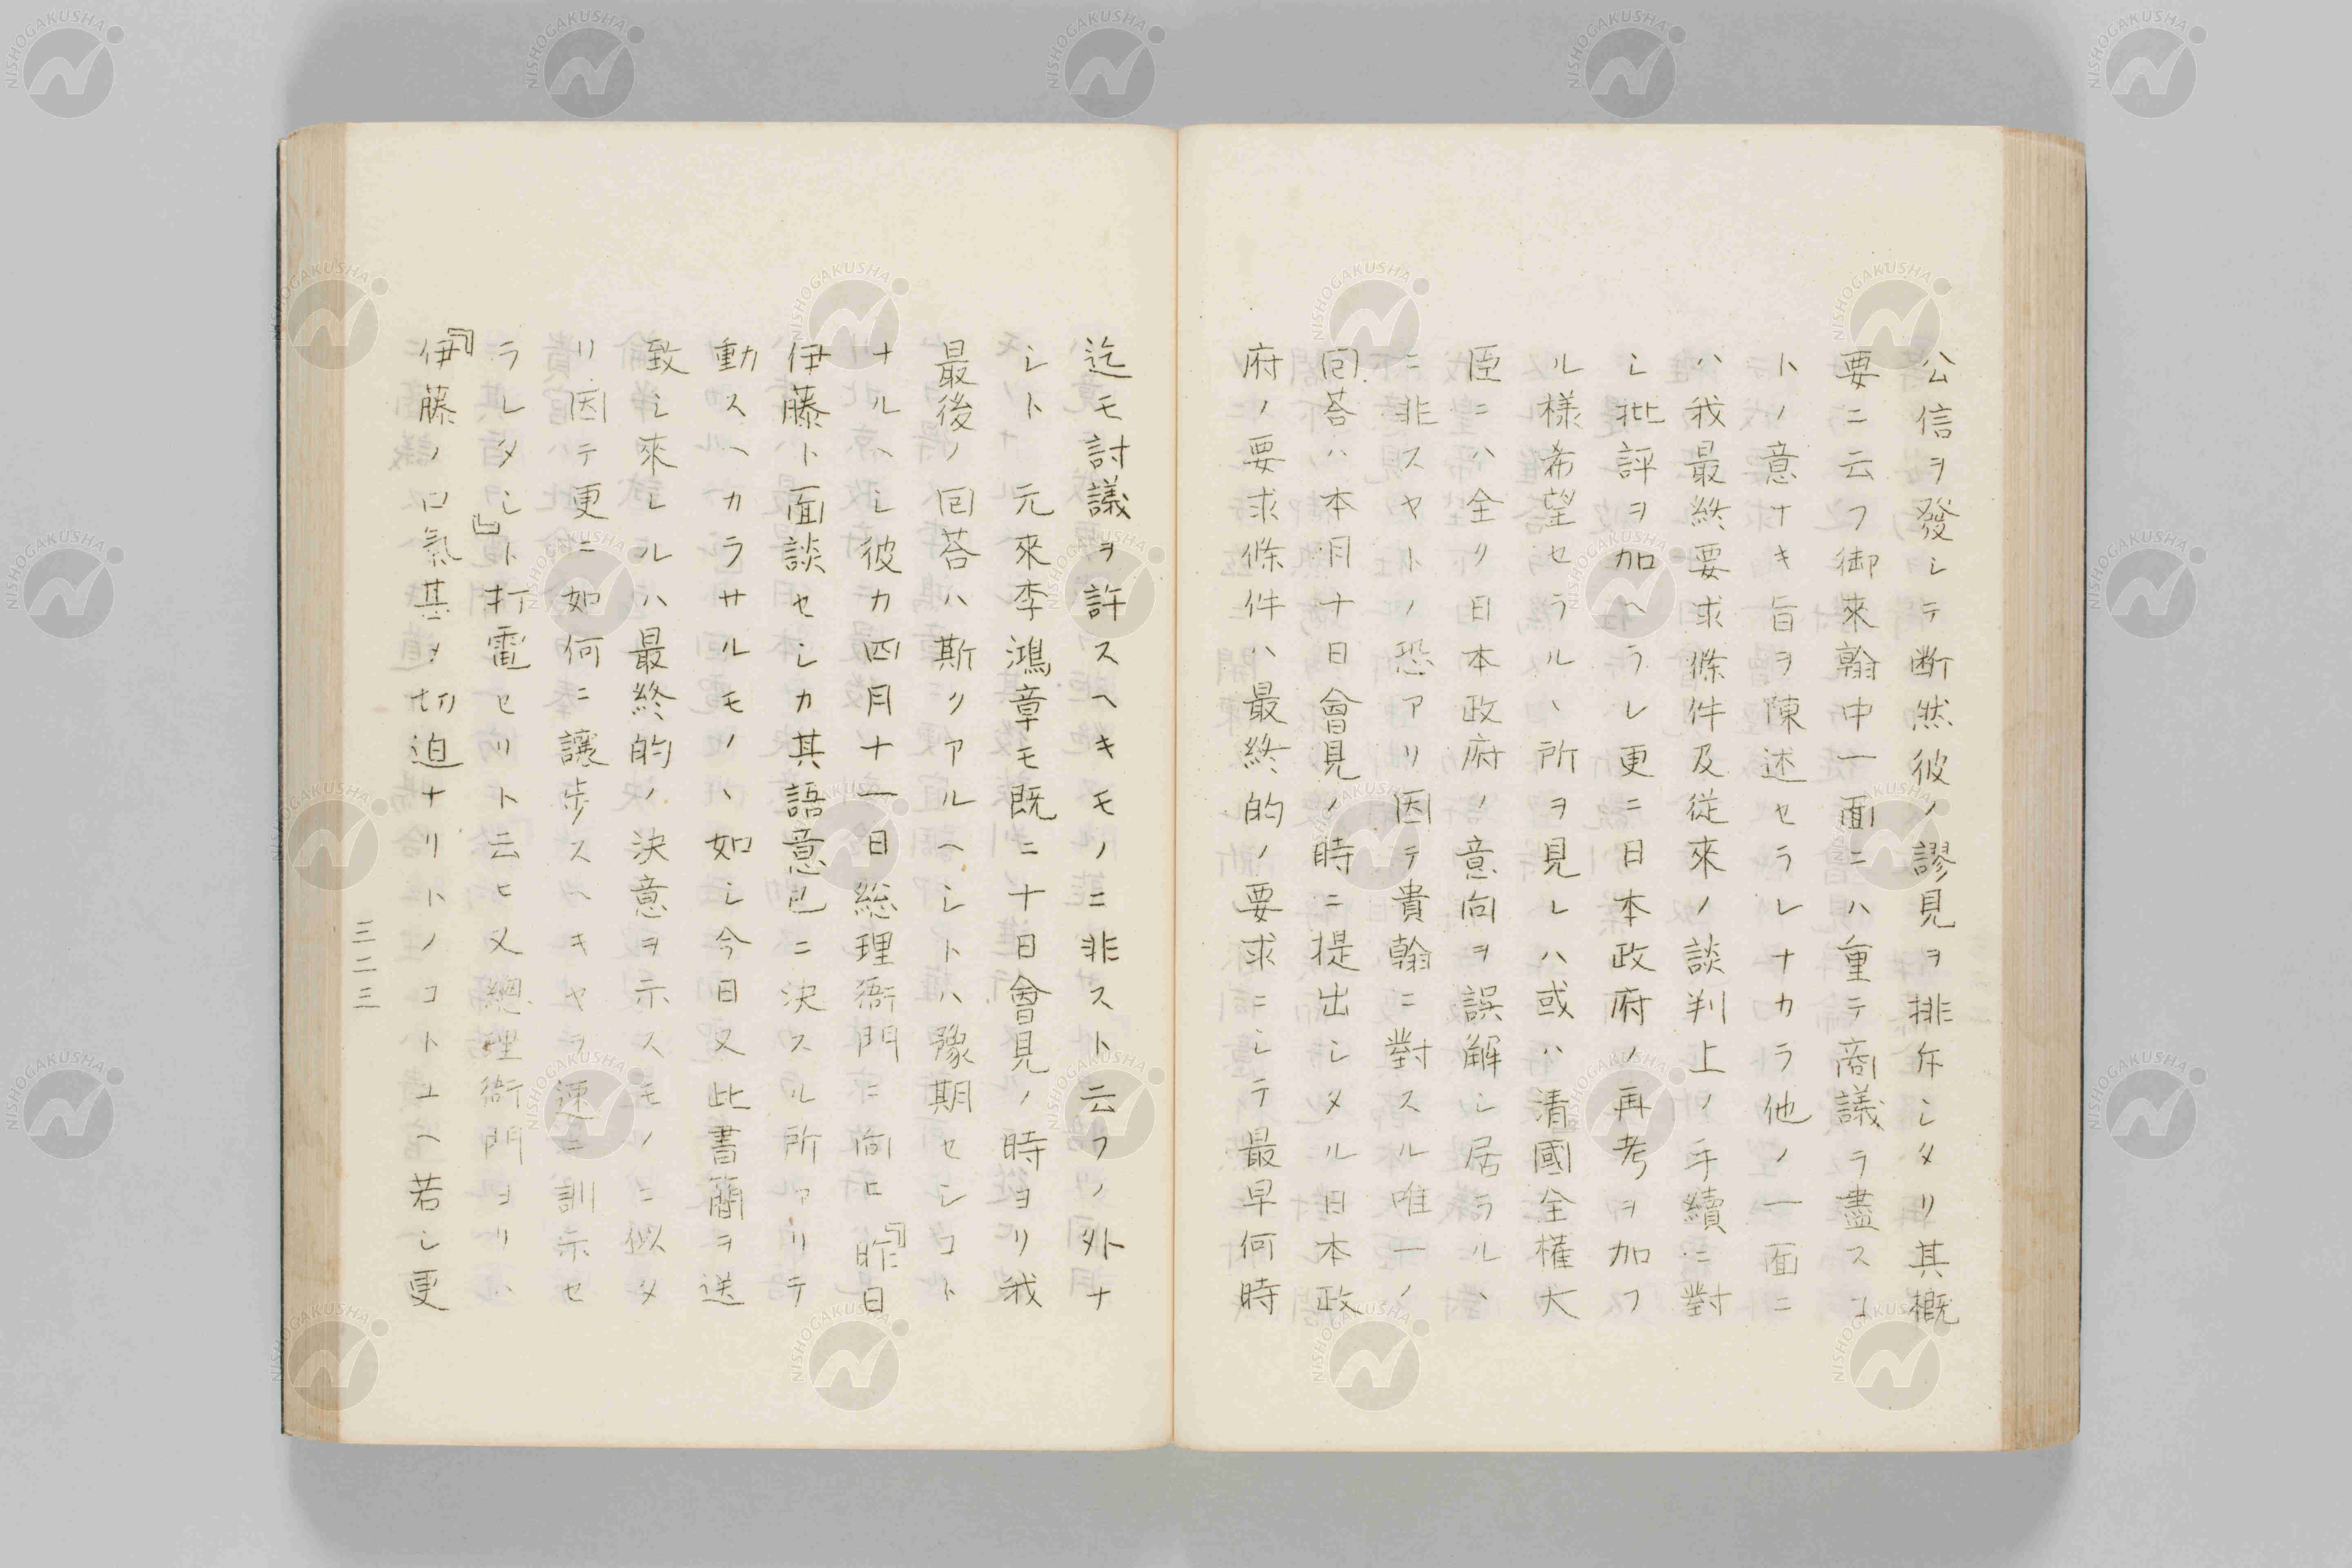 公信ヲ發シテ断然彼ノ謬見ヲ排斥シタリ其概
要ニ云フ御來翰中一面ニハ重テ商議ヲ盡スコ
トノ意ナキ旨ヲ陳述セラレナカラ他ノ一面ニ
ハ我最終要求條件及従來ノ談判上ノ手續ニ對
シ批評ヲ加ヘラレ更ニ日本政府ノ再考ヲ加フ
ル様希望セラルヽ所ヲ見レハ或ハ清國全權大
臣ニハ全ク日本政府ノ意向ヲ誤解シ居ラルヽ
ニ非スヤトノ恐アリ因テ貴翰ニ對スル唯一ノ
回荅ハ本月十日會見ノ時ニ提出シタル日本政
府ノ要求條件ハ最終的ノ要求ニシテ最早何時
迄モ討議ヲ許スヘキモノニ非スト云フノ外ナ
シト 元來李鴻章モ既ニ十日會見ノ時ヨリ我
最後ノ回荅ハ斯クアルヘシトハ豫期セシコト
ナルヘシ彼カ四月十一日総理衙門ニ向ヒ『昨日
伊藤ト面談セシカ其語意已ニ決スル所アリテ
動スヘカラサルモノヽ如シ今日又此書簡ヲ送
致シ來レルハ最終的ノ決意ヲ示スモノニ似タ
リ因テ更ニ如何ニ讓歩スヘキヤヲ速ニ訓示セ
ラレタシ』ト打電セリト云ヒ又總理衙門ヨリハ
『伊藤ノ口氣甚タ切迫ナリトノコトユヘ若シ更
三二三
NISHOGAKUSHA